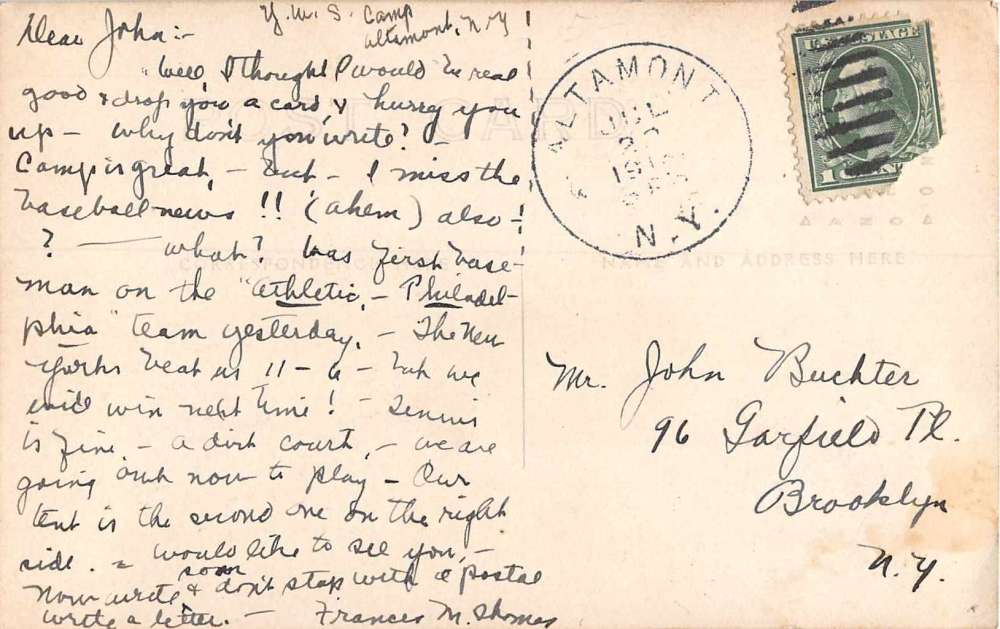 Y.M.S. Camp
Altamont, N.Y
Dear John:-
Well I thought I would be real
good & drop you a card & hurry you
up - why don't you write? -
Camp is great, - but - I miss the
baseball news !! (ahem) also -!
? — what? Was first base-
man on the "athletic, - Philadel-
phia" team yesterday, - The New
Yorks beat us 11 - 6 - but we
will win next time! - Tennis
is fine - a dirt court, - we are
going out now to play - Our
tent is the second one on the right
side. - would like to see you, -
Now write soon & don't stop with a postal
write a letter. - Frances M. Thomas
POST CARD
CORRESPONDENCE HERE
NAME AND ADDRESS HERE
ALTAMONT
JUL
N.Y.
U.S. POSTAGE
1 CENT
AZO
Mr. John Buchter
96 Garfield Pl.
Brooklyn
N.Y.